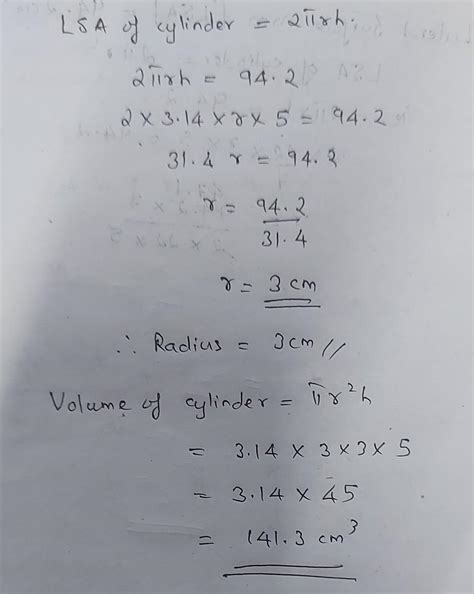 LSA of cylinder = 2πrh.
2πrh = 94.2
2 × 3.14 × r × 5 = 94.2
31.4 r = 94.2
r = 94.2
31.4
r = 3 cm
∴ Radius = 3cm //
Volume of cylinder = πr²h
= 3.14 × 3 × 3 × 5
= 3.14 × 45
= 141.3 cm³